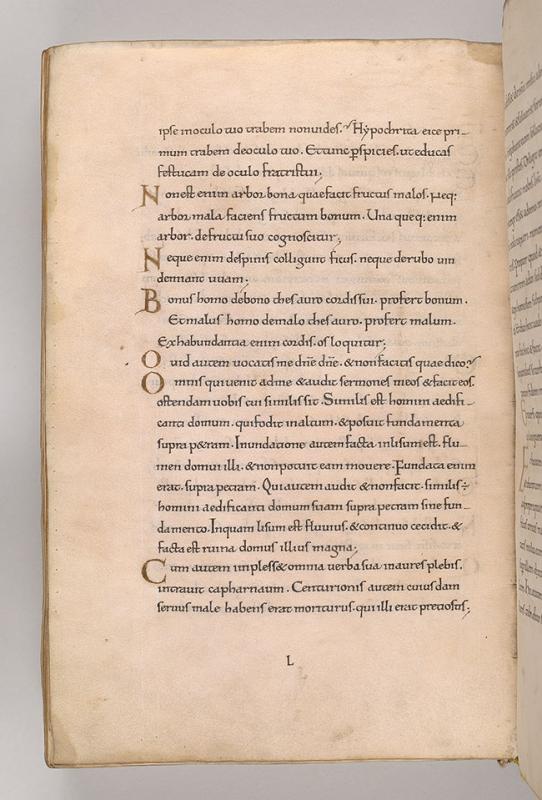 ipse inoculo tuo trabem nonuides. Hypochrita eice pri-
mum trabem deoculo tuo. Et tunc ꝑspicies. ut educas
festucam de oculo fratris tui;
Non est enim arbor bona quae facit fructus malos. neq:
arbor mala faciens fructum bonum. Una queq: enim
arbor. de fructu suo cognoscitur;
Neque enim despinis colligunt ficus. neque derubo uin
demiant uuam.
Bonus homo debono thesauro cordis sui. profert bonum.
Et malus homo demalo thesauro. profert malum.
Ex habundantia enim cordis. os loquitur;
Quid autem uocatis me dn̄e dn̄e. & nonfacitis quae dico?
Omnis qui uenit adme & audit sermones meos & facit eos.
ostendam uobis cui similis sit. Similis est homini aedifi-
canti domum. qui fodit inaltum. & posuit fundamenta
supra p&ram. Inundatione autem facta inlisum est. flu-
men domui illi. & nonpotuit eam mouere. Fundata enim
erat. supra petram. Qui autem audit & nonfacit. similis ÷
homini aedificanti domum suam supra petram sine fun-
damento. Inquam lisum est fluuius. & continuo cecidit. &
facta est ruina domus illius magna;
Cum autem impless& omnia uerba sua inaures plebis.
intrauit capharnaum. Centurionis autem cuiusdam
seruus male habens erat moriturus. qui illi erat preciosus;
L